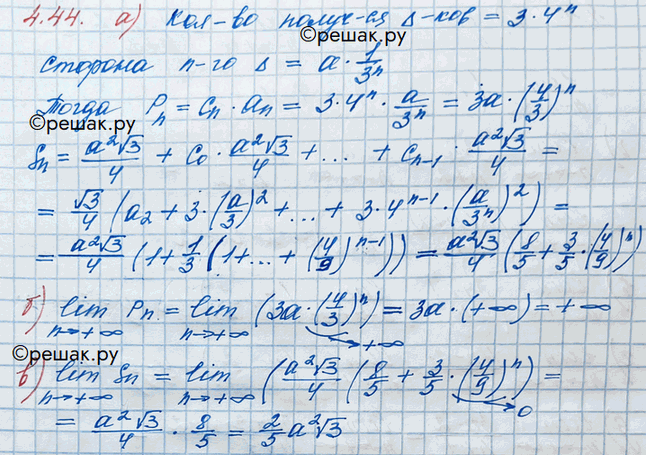 4.44. а) Кол-во получ-ся Δ-ков = 3·4ⁿ
©решак.ру
сторона n-го Δ = a · 1/3ⁿ
Тогда Pₙ = Cₙ · aₙ = 3·4ⁿ · a/3ⁿ = 3a · (4/3)ⁿ
©решак.ру
Sₙ = a²√3/4 + C₀ · a²√3/4 + ... + Cₙ₋₁ · a²√3/4 =
= √3/4 (a₂ + 3·(a/3)² + ... + 3·4ⁿ⁻¹ · (a/3ⁿ)²) =
= a²√3/4 (1 + 1/3 (1+... + (4/9)ⁿ⁻¹)) = a²√3/4 (8/5 + 3/5 · (4/9)ⁿ)
б) lim Pₙ = lim (3a · (4/3)ⁿ) = 3a · (+∞) = +∞
n→+∞ n→+∞ →+∞
©решак.ру
в) lim Sₙ = lim (a²√3/4 (8/5 + 3/5 · (4/9)ⁿ) =
n→+∞ n→+∞ →0
= a²√3/4 · 8/5 = 2/5 a²√3